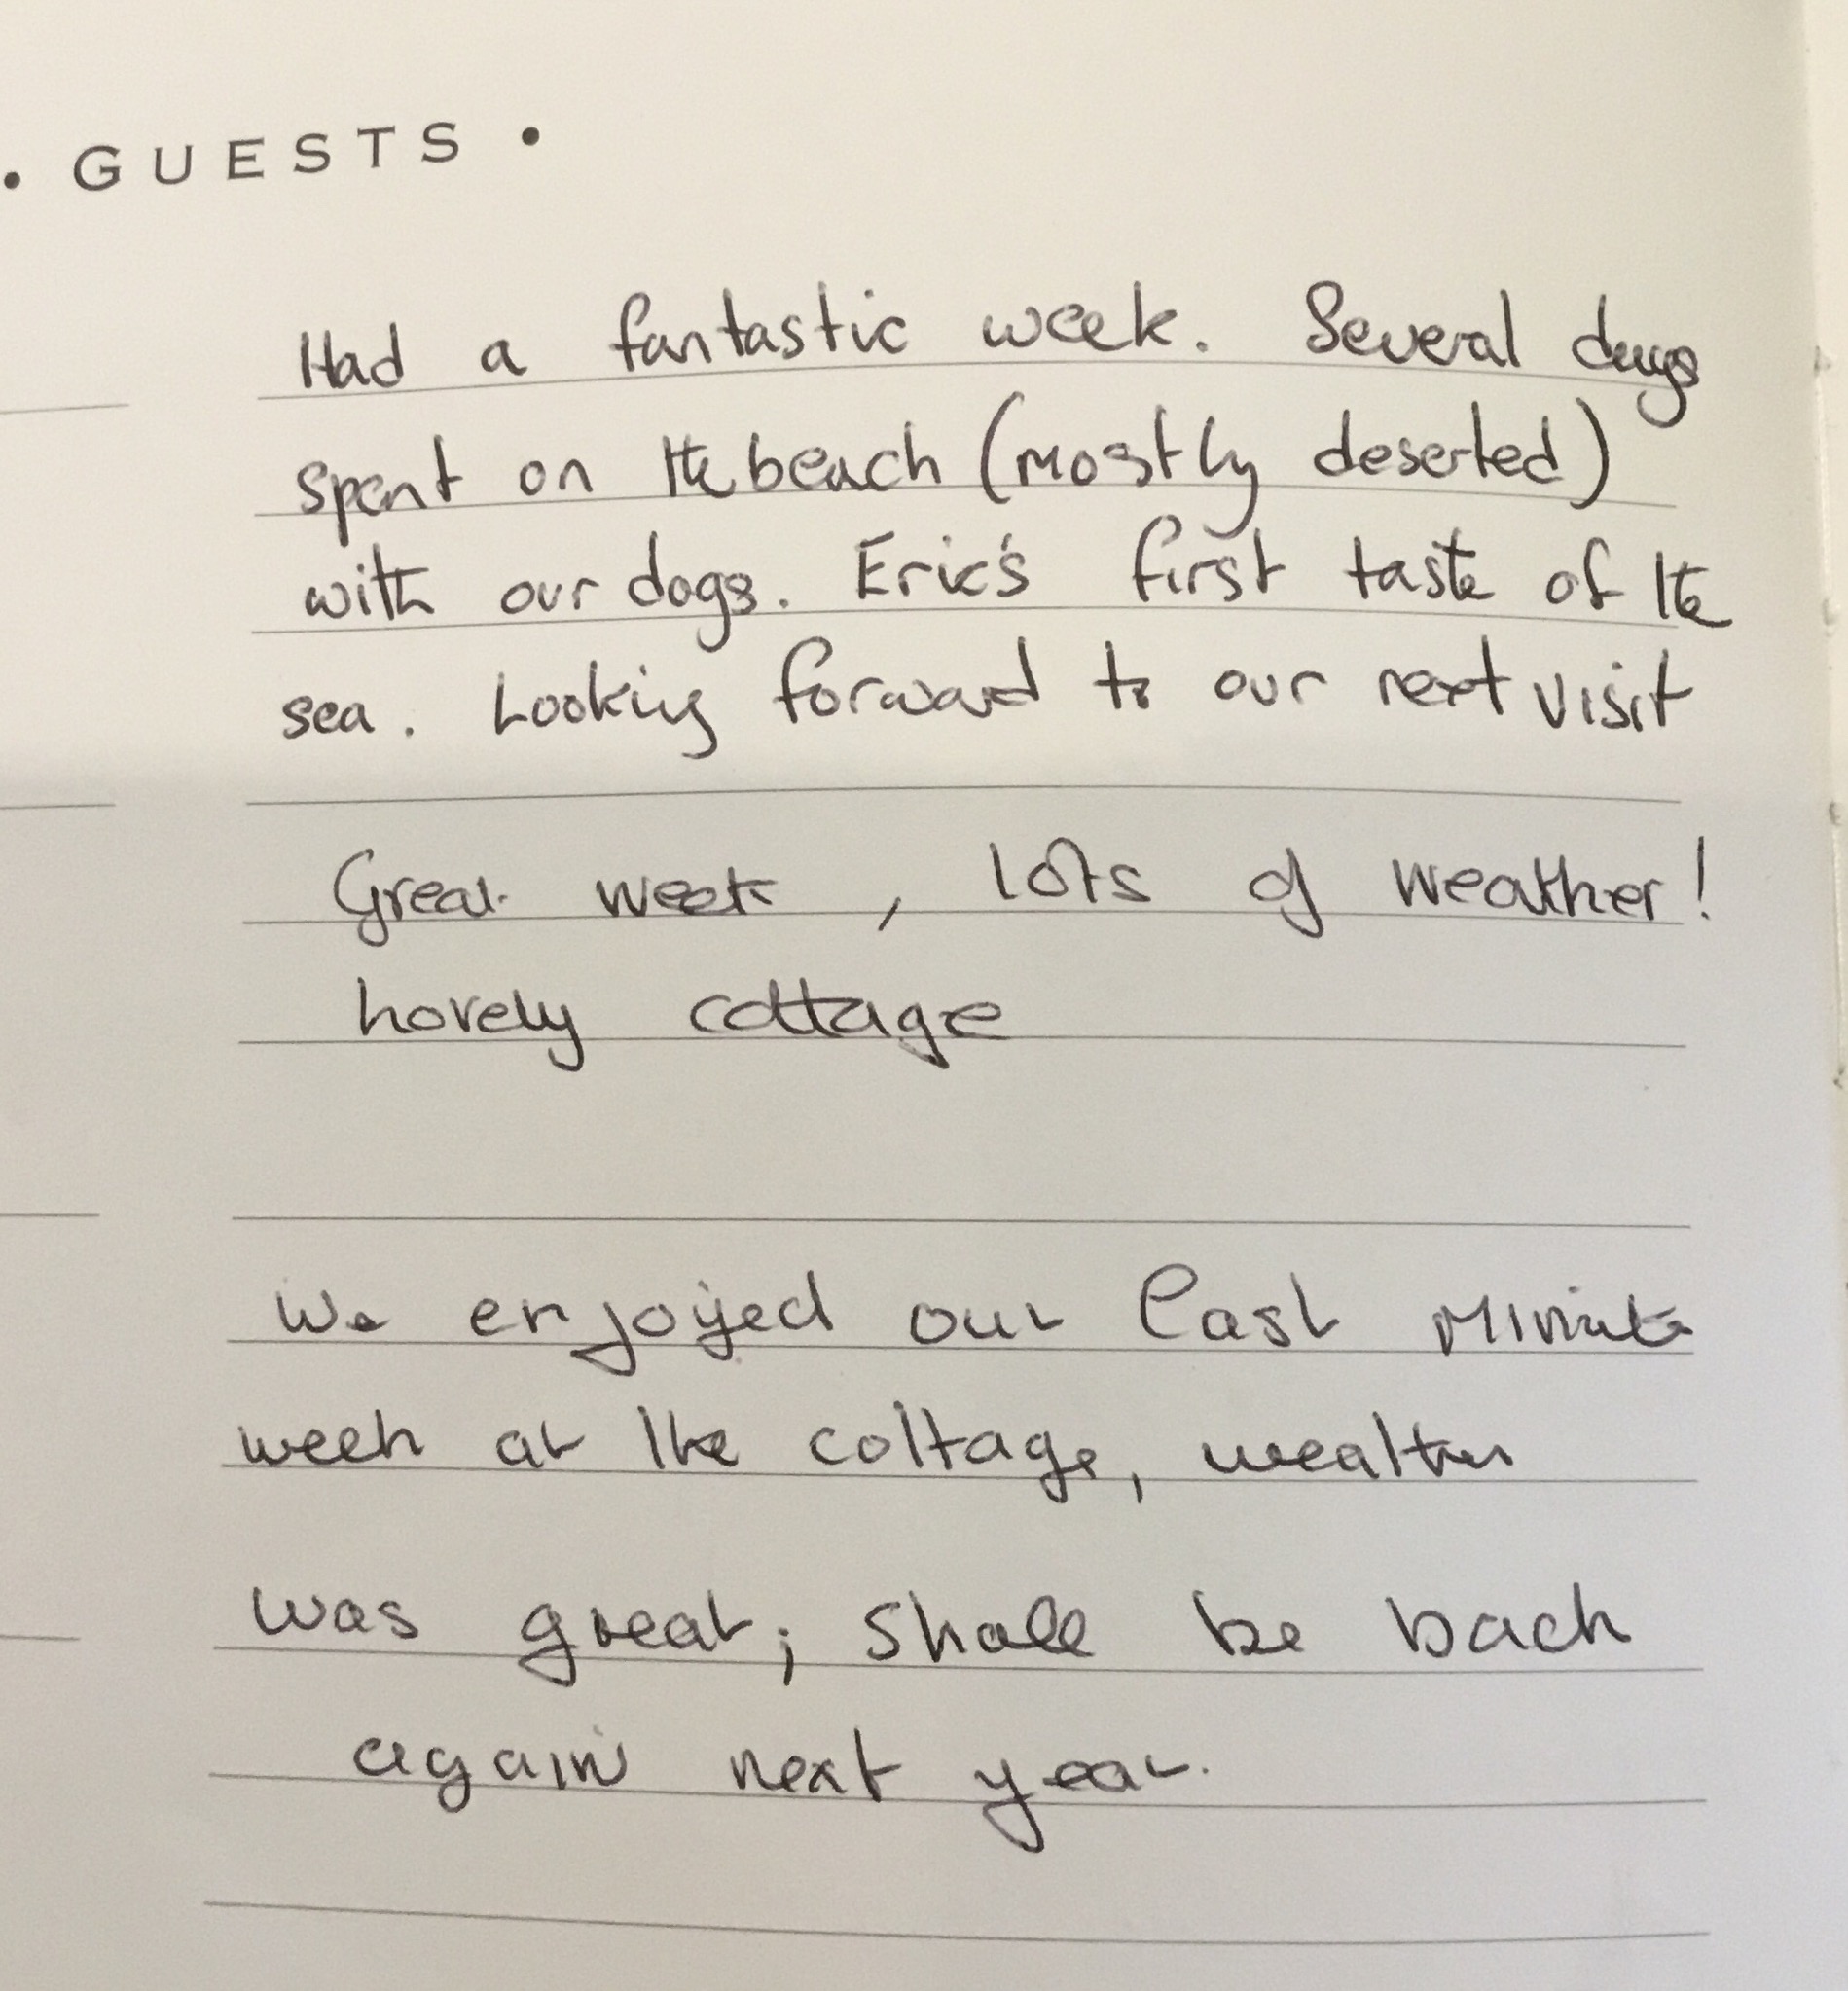 • GUESTS •
Had a fantastic week. Several days
spent on the beach (mostly deserted)
with our dogs. Eric's first taste of the
sea. Looking forward to our next visit
Great week, lots of weather!
Lovely cottage
We enjoyed our last minute
week at the cottage, weather
was great; shall be back
again next year.